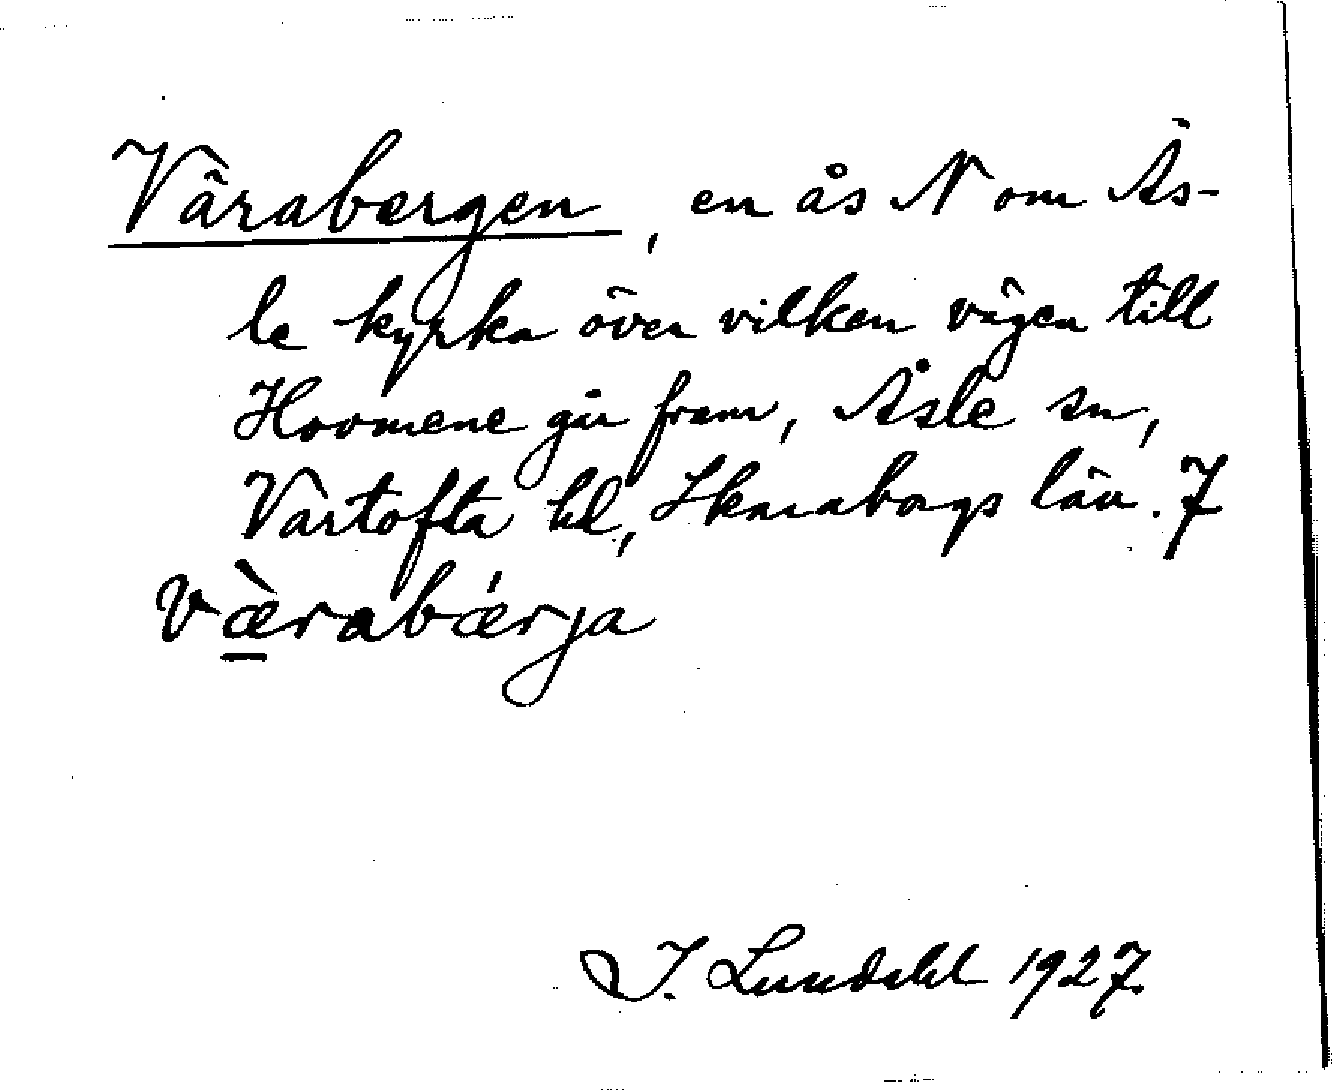 Värabergen, en ås N om Ås-
le kyrka över vilken vägen till
Hovmene går fram, Åsle sn,
Vartofta hd, Skarabogs län. 7
Væ̀rabǽrja
I. Lundahl 1927.